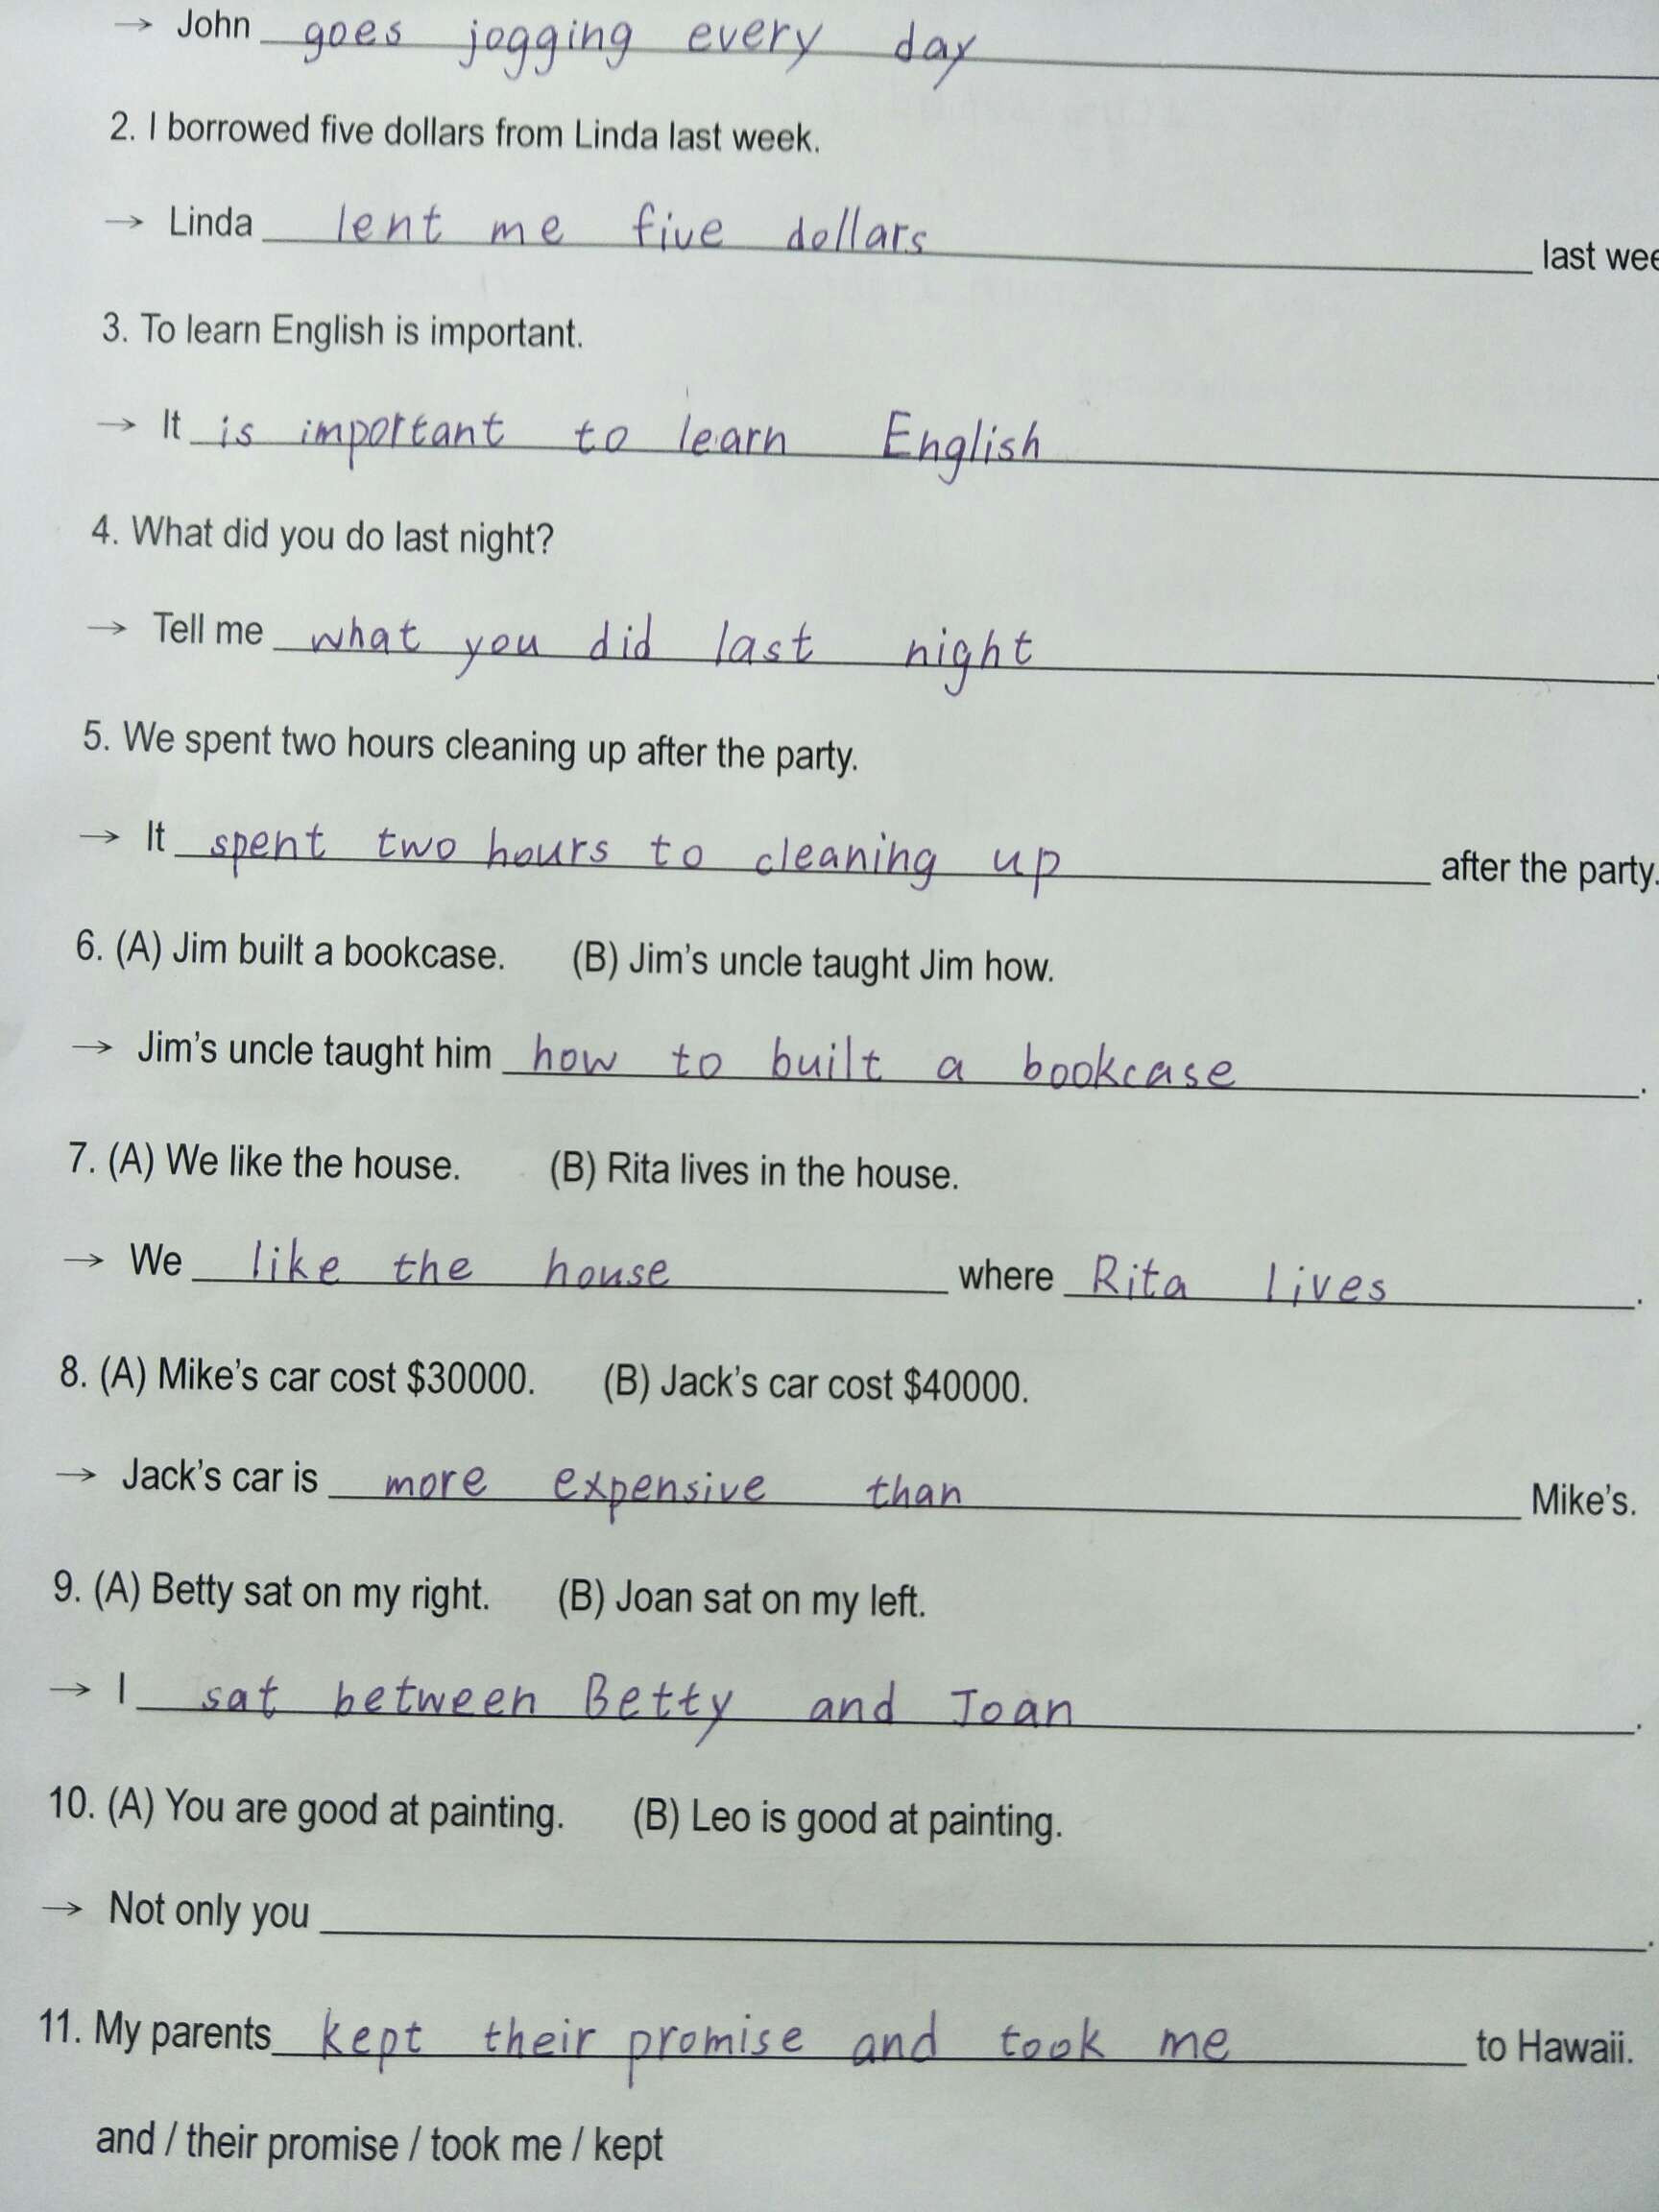 → John goes jogging every day
2. I borrowed five dollars from Linda last week.
→ Linda lent me five dollars last wee
3. To learn English is important.
→ It is important to learn English
4. What did you do last night?
→ Tell me what you did last night.
5. We spent two hours cleaning up after the party.
→ It spent two hours to cleaning up after the party.
6. (A) Jim built a bookcase. (B) Jim's uncle taught Jim how.
→ Jim's uncle taught him how to built a bookcase.
7. (A) We like the house. (B) Rita lives in the house.
→ We like the house where Rita lives.
8. (A) Mike's car cost $30000. (B) Jack's car cost $40000.
→ Jack's car is more expensive than Mike's.
9. (A) Betty sat on my right. (B) Joan sat on my left.
→ I sat between Betty and Joan.
10. (A) You are good at painting. (B) Leo is good at painting.
→ Not only you .
11. My parents kept their promise and took me to Hawaii.
and / their promise / took me / kept